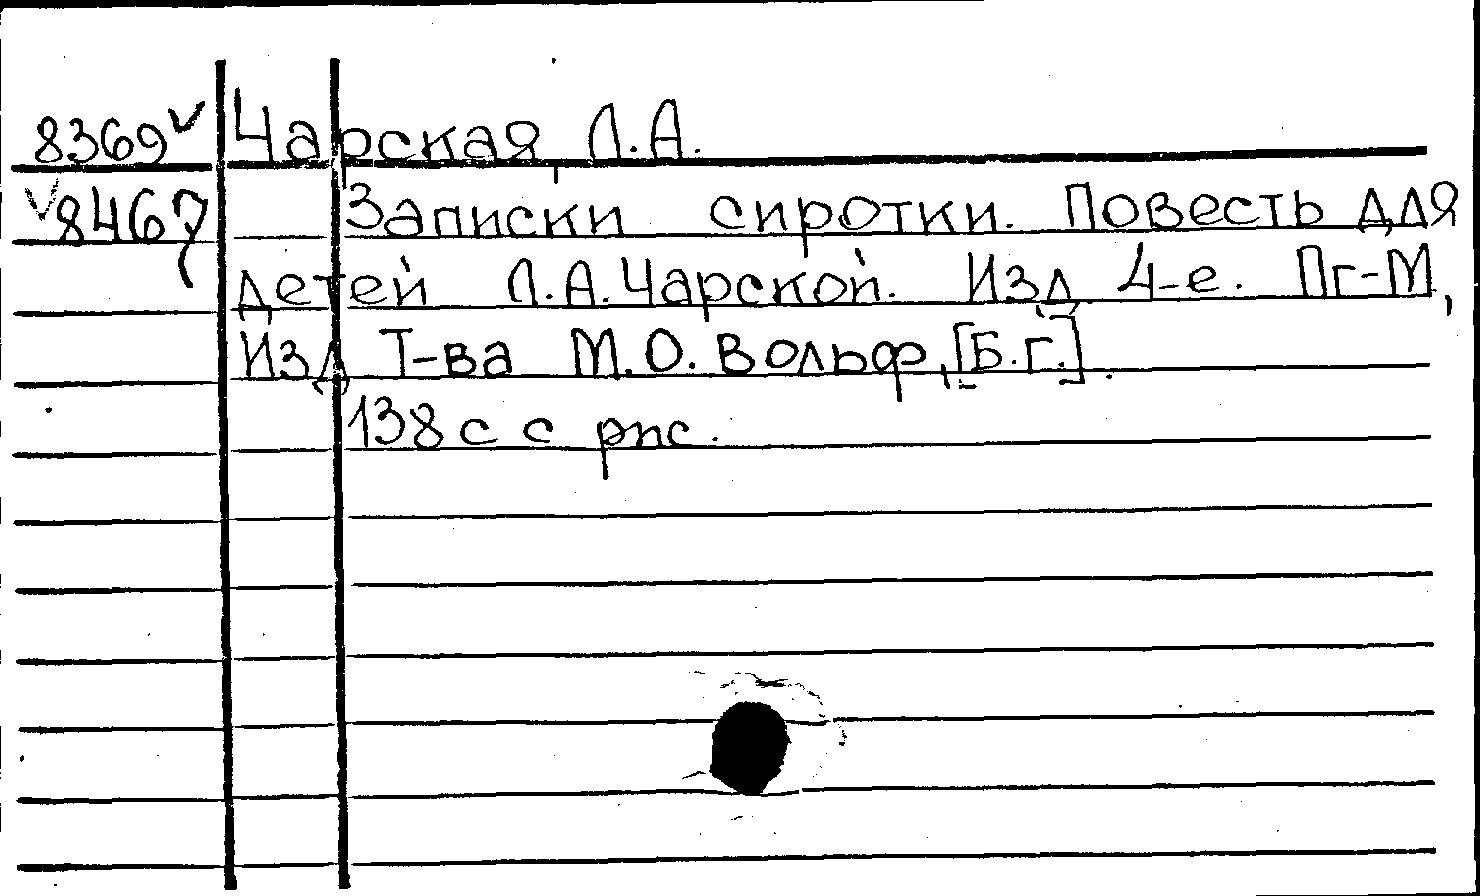 8369 ✓ Чарская, Л.А.
✓ 8467 Записки сиротки. Повесть для
детей Л.А. Чарской. Изд. 4-е. Пг-М,
Изд. Т-ва М.О. Вольф, [Б.г.].
138 с с рис.